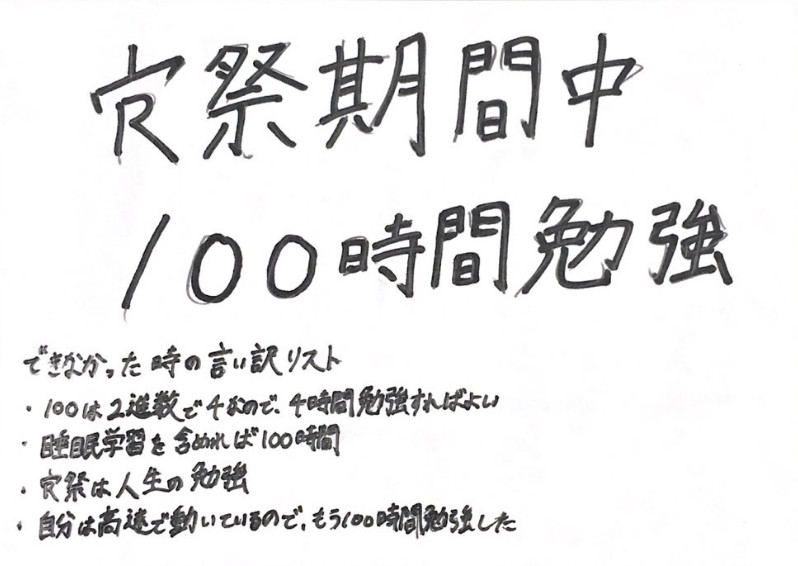 寮祭期間中
100時間勉強
できなかった時の言い訳リスト
・100は2進数で4なので、4時間勉強すればよい
・睡眠学習を含めれば100時間
・寮祭は人生の勉強
・自分は高速で動いているので、もう100時間勉強した